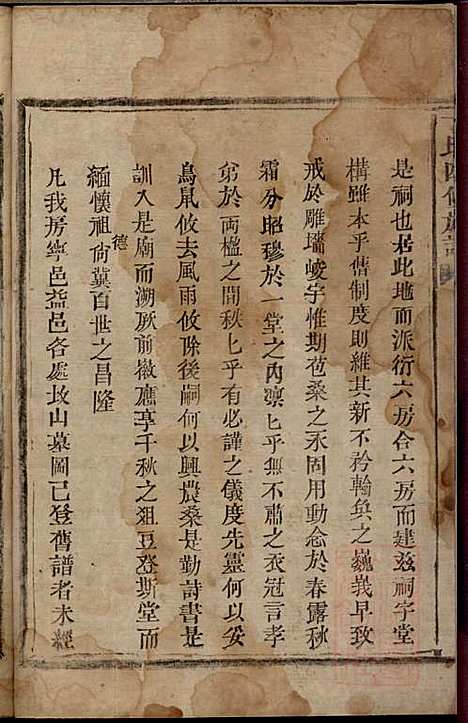 是祠也居此地而派衍六房合六房而建茲祠宇堂
構雖本乎舊制度則維其新不矜輪奐之巍義早致
戒於雕墻峻宇惟期苞桑之永固用動念於春露秋
霜分昭穆於一堂之內凜匕乎無不肅之衣冠言孝
弟於兩楹之間秩匕乎有必謹之儀度先靈何以妥
鳥鼠攸去風雨攸除後嗣何以興農桑是勤詩書是
訓入是廟而溯厥前徽薦享千秋之俎豆登斯堂而
緬懷祖德尚冀百世之昌隆
凡我房寧邑益邑各處坟山墓圖已登舊譜者未經
氏四修族譜